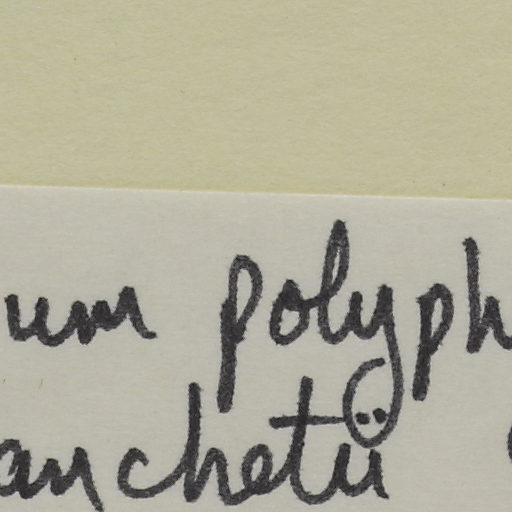 um polyph
anchetii